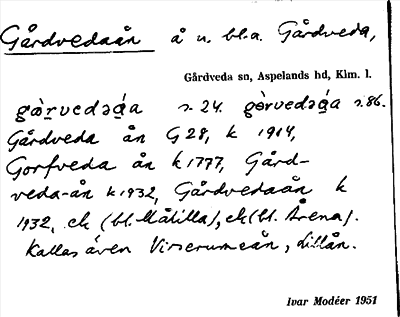 Gårdvedaån å n. bl.a. Gårdveda,
Gårdveda sn, Aspelands hd, Klm. l.
s. 24. s. 86.
Gårdveda ån G 28, k 1914,
Gorfveda ån k 1777, Gård-
veda-ån k 1932, Gårdvedaån k
1932, ek (bl. Målilla), ek (bl. Årena).
Kallas även Virserumsån, Lillån.
Ivar Modéer 1951